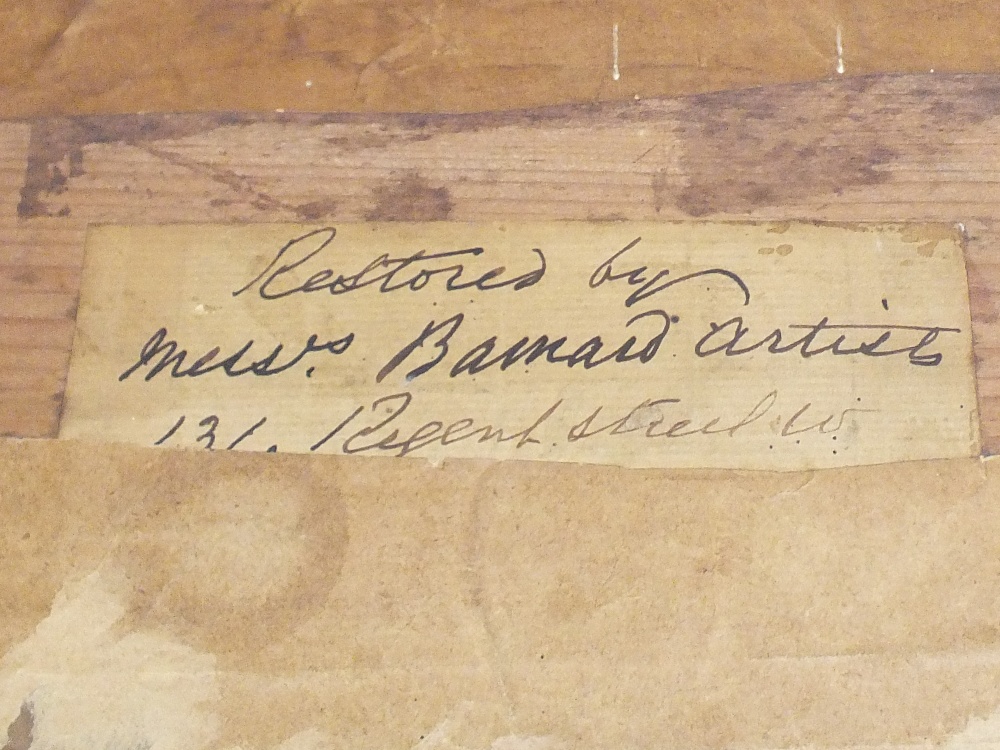 Restored by
Messrs. Barnard Artists
131. Regent street W